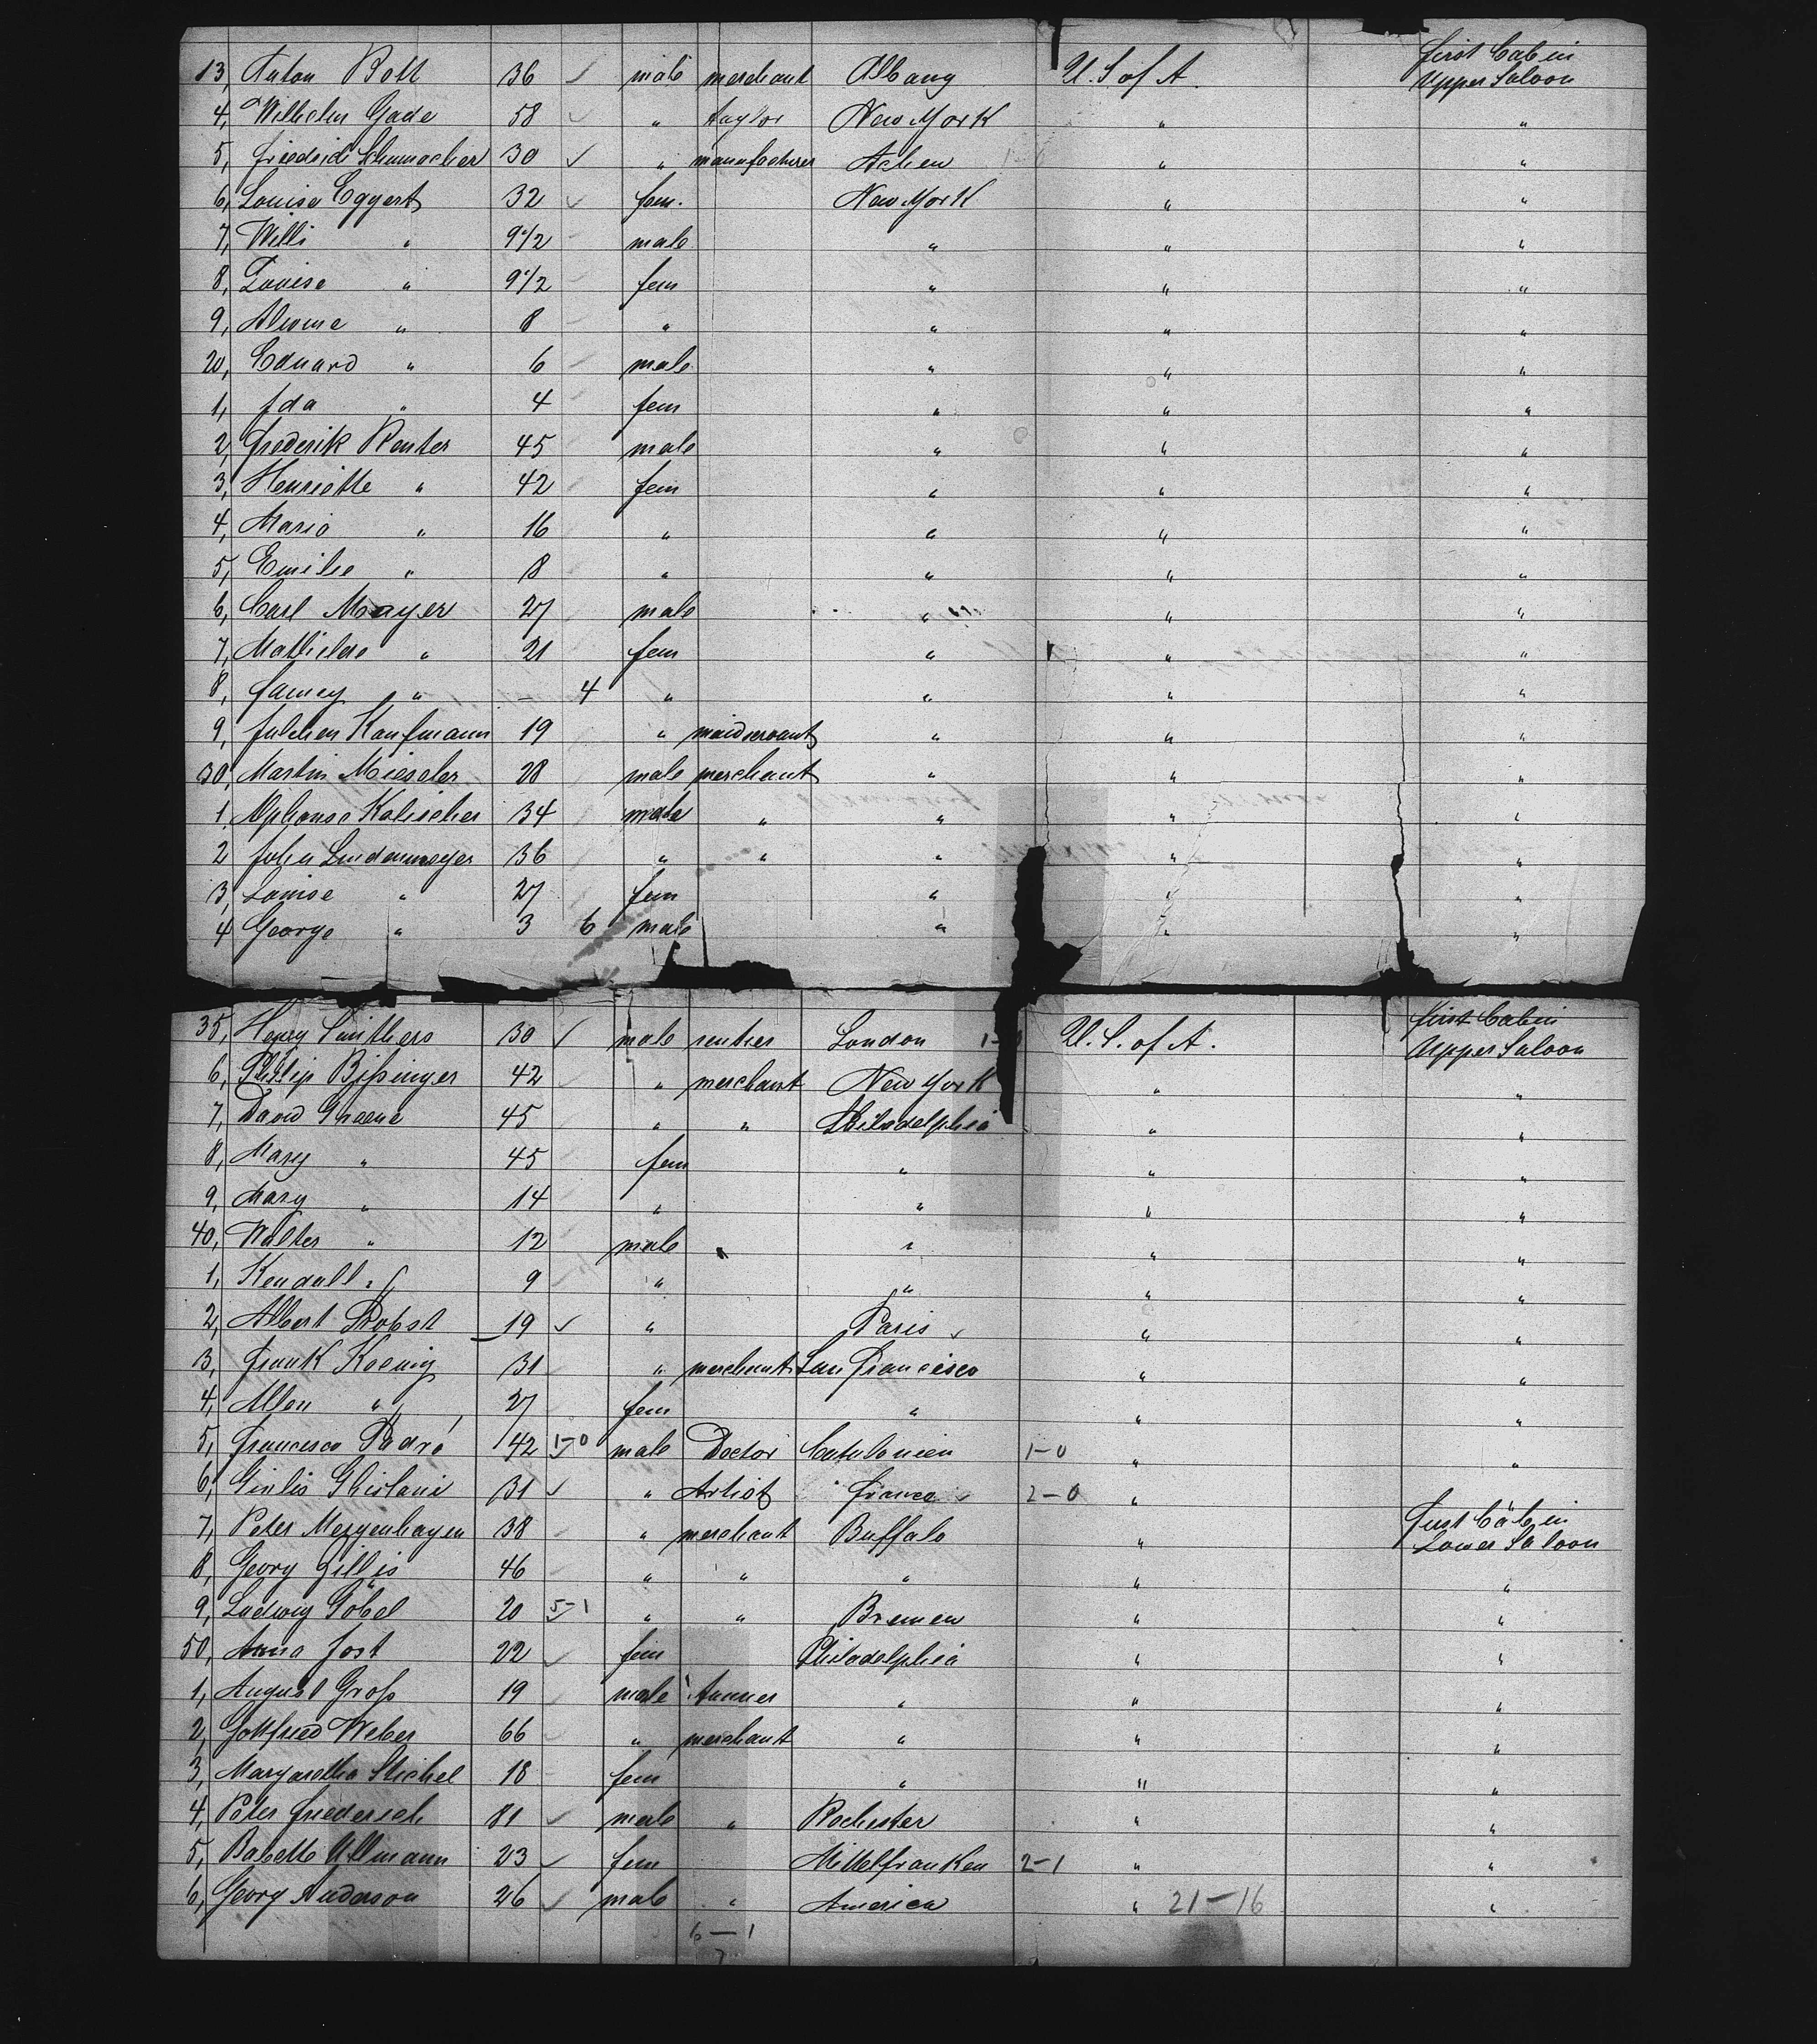 13, Anton Bott 36 ✓ male merchant Albany U. S of A. first Cabin Upper Saloon
4, Wilhelm Gade 58 ✓ " taylor New York " "
5, Friedrich Schumacher 30 ✓ " manufacturer Achen " "
6, Louise Eggert 32 ✓ fem. New York " "
7, Willi " 9 1/2 male " " "
8, Louise " 9 1/2 fem " " "
9, Alwine " 8 " " " "
20, Eduard " 6 male " " "
1, Ida " 4 fem " " "
2, Frederik Reuter 45 male " " "
3, Henriette " 42 fem " " "
4, Maria " 16 " " " "
5, Emilie " 8 " " " "
6, Carl Mayer 27 male " " "
7, Mathilde " 21 fem " " "
8, Fanny " – 4 " " " "
9, Julchen Kaufmann 19 " maidservant " " "
30, Martin Mieseler 28 male merchant " " "
1 Alphonse Kalischer 34 male " " " "
2 John Lindenmeyer 36 " " " " "
3, Louise " 27 fem " " "
4 George " 3 6 male " " "
35, Henry Smithers 30 ✓ male rentier London U. S. of A. first Cabin Upper Saloon
6, Philip Bißinger 42 " merchant New York " "
7, David Greene 45 " " Philadelphia " "
8, Mary " 45 fem " " "
9, Mary " 14 " " " "
40, Walter " 12 male " " "
1, Kendall " 9 " " " "
2, Albert Probst 19 ✓ " Paris ✓ " "
3, Frank Koenig 31 " merchant San Francisco " "
4, Allen " 27 fem " " "
5, Francesco Padró 42 1-0 male Doctor Catalonien 1-0 " "
6, Giulio Ghislani 31 ✓ " Artist France ✓ 2-0 "
7, Peter Mergenhagen 38 " merchant Buffalo " first Cabin Lower Saloon
8, Georg Gillis 46 " " " " "
9, Ludwig Göbel 20 5-1 " " Bremen " "
50, Anna Jost 22 ✓ fem Philadelphia " "
1, August Groß 19 male tanner " " "
2, Gottfried Weber 66 " merchant " " "
3, Margaretha Stichel 18 fem " " "
4, Peter Friederich 81 ✓ male " Rochester " "
5, Babette Ullmann 23 ✓ fem Mittelfranken 2-1 " "
6, Georg Anderson 26 ✓ male " America " 21-16 "
6-1